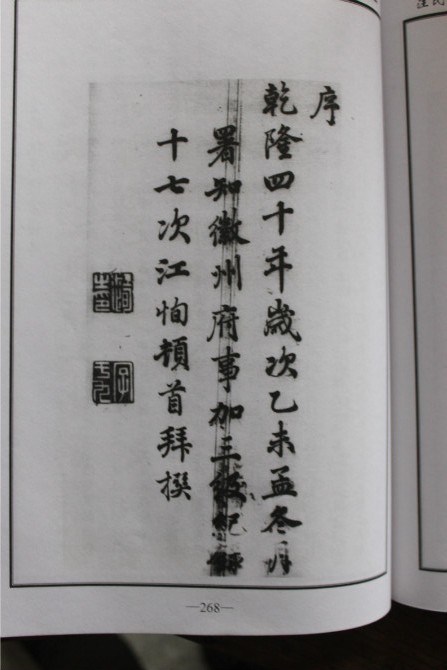 序
乾隆四十年歲次乙未孟冬月
署知徽州府事加三級紀錄
十七次江恂頓首拜撰
—268—